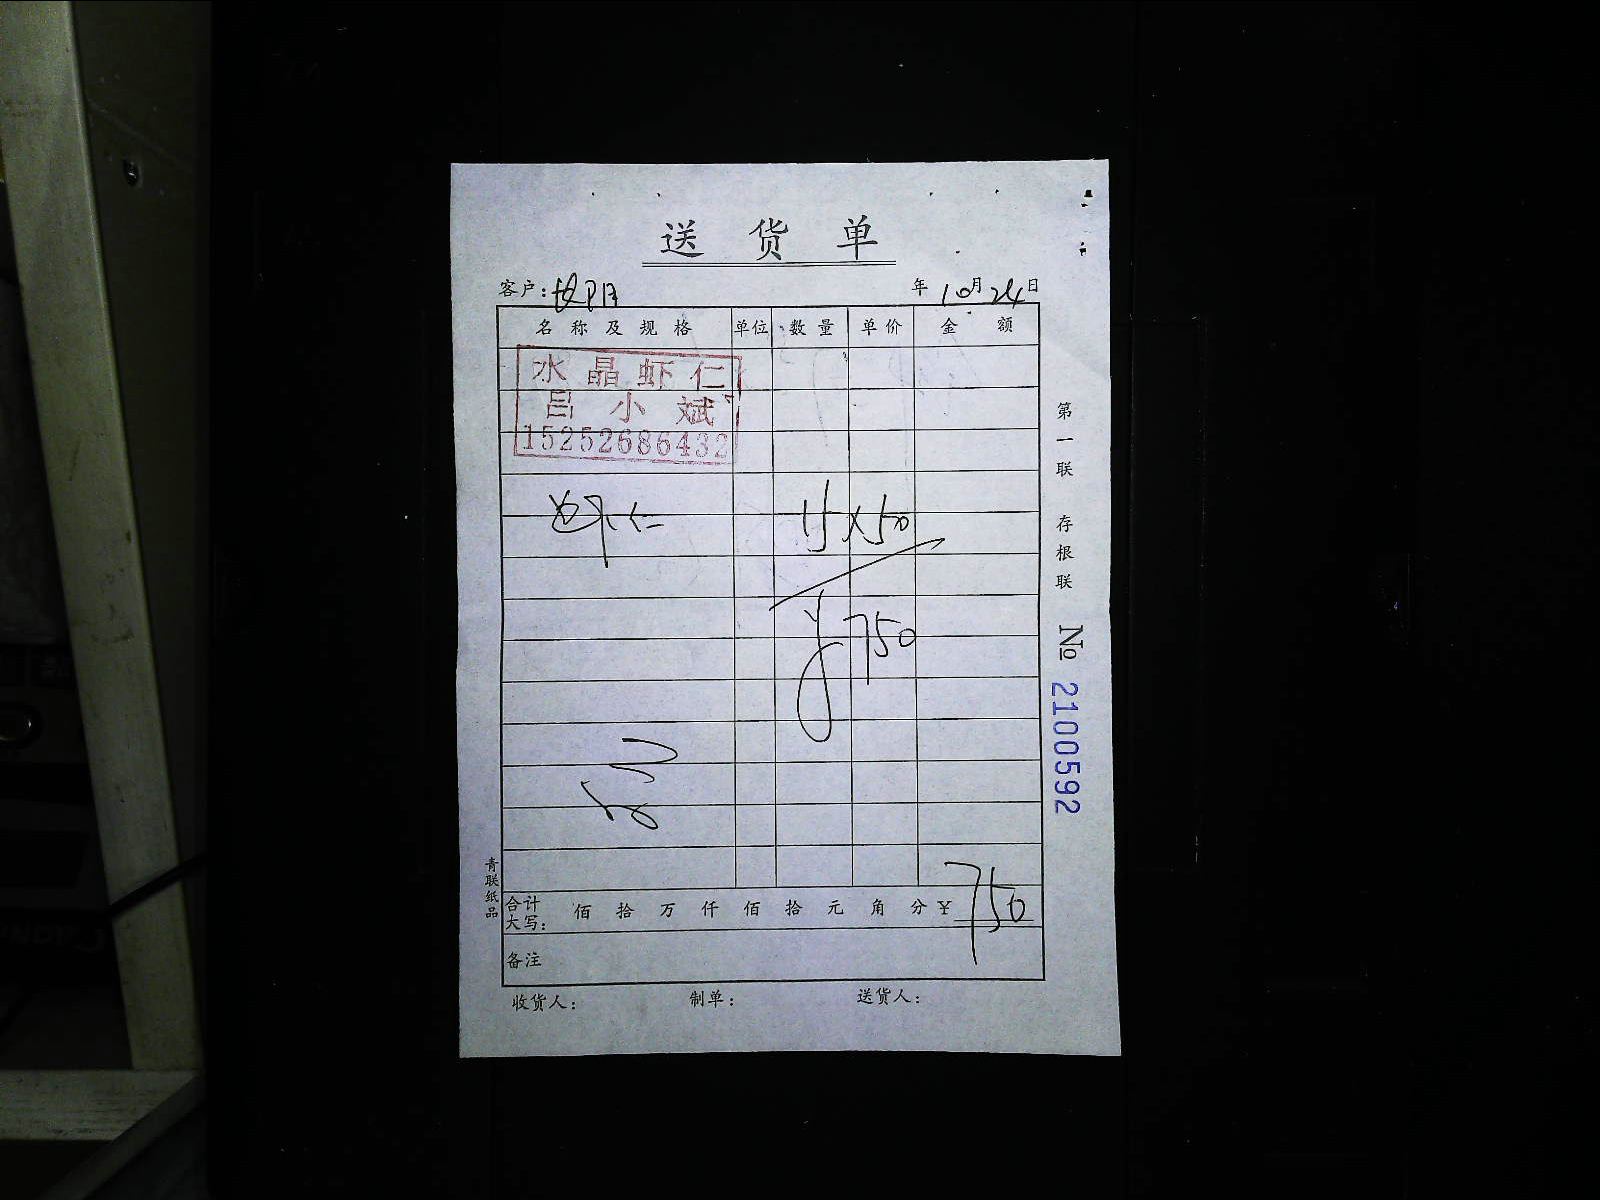 送货单
客户: 年 10月24日
名称及规格 单位 数量 单价 金额
水晶虾仁
吕小斌
15252686432
虾仁 15×50
¥750
合计大写: 佰 拾 万 仟 佰 拾 元 角 分 ¥ 750
备注
收货人: 制单: 送货人:
第一联 存根联 № 2100592
青联纸品